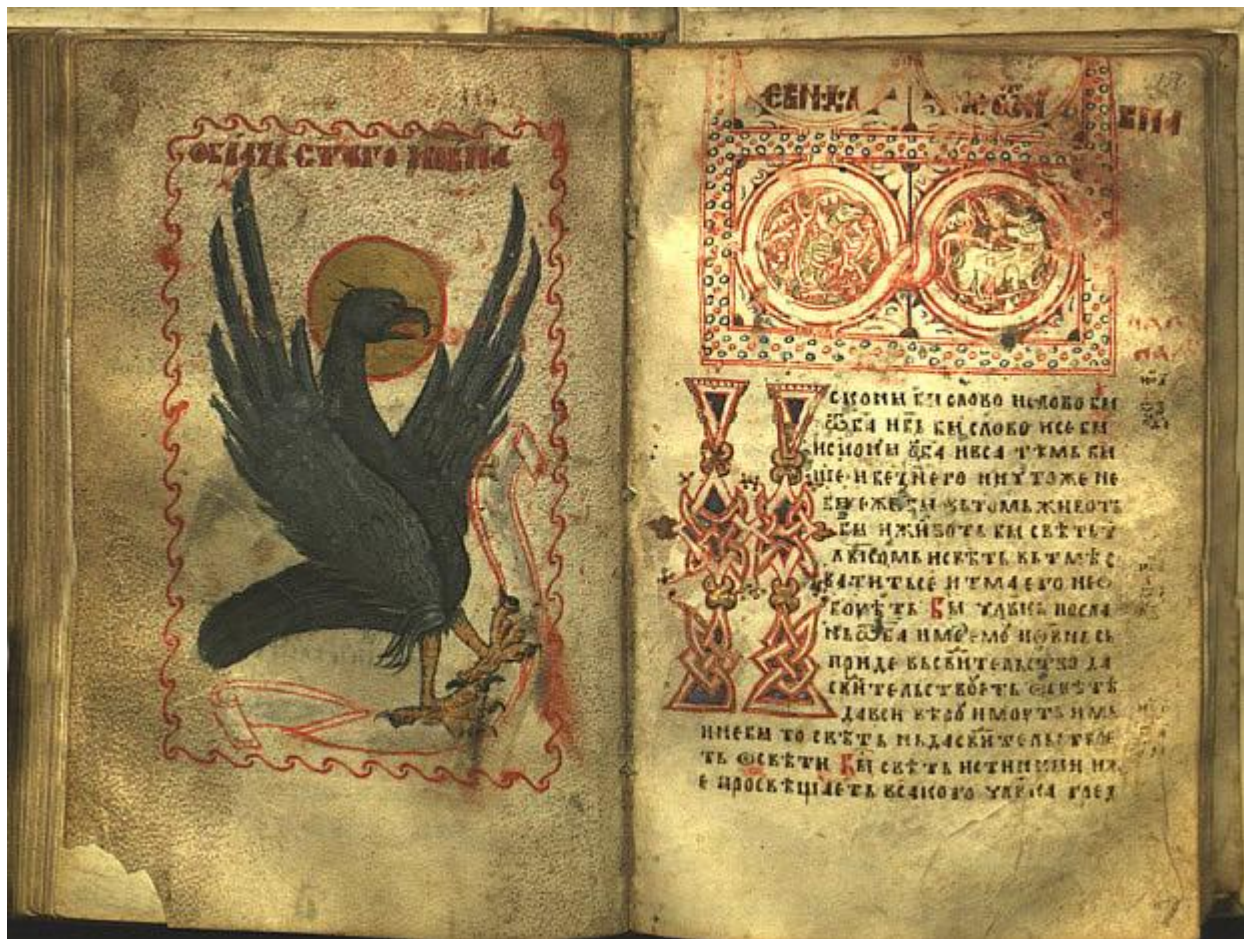 ОБРАЗЬ СТАГО ІѠВНА
ЕВНХЛ ѾІѠ ВНА
ИСКОНИ БИ СЛОВО И СЛОВО БИ
Ѿ БА И БЬ БИ СЛОВО И СЕ БИ
ИСКОНИ Ѿ БА И ВСА ТѢМЬ БИ
ШЕ И БЕЗ НЕГО НИЧТОЖЕ НЕ
БИ ЕЖЕ БИ ВЬ ТОМЬ ЖИВОТЬ
БИ И ЖИВОТЬ БИ СВѢТЬ Ч
ЛВКОМЬ И СВѢТЬ ВЬ ТМѢ С
ВАТИТЬ СЕ И ТМА ЕГО НЕ Ѡ
БОИМЕТЬ БЫ ЧЛВКЬ ПОСЛА
НЬ Ѿ БА ИМЕ ЕМО ИѠВНЬ СЬ
ПРИДЕ ВЬ СВИТЕЛЬСТВО ДА
СВИТЕЛЬСТВОЕТЬ Ѡ СВѢТѢ
ДА ВСИ ВѢРОУ ИМОУТЬ ИМЬ
И НЕ БИ ТО СВѢТЬ НЬ ДА СВИТЕЛЬСТВОЕ
ТЬ Ѡ СВѢТИ БИ СВѢТЬ ИСТИНИИ ИЖ
Е ПРОСВѢЩАЕТЬ ВСАКОГО ЧЛВКА ГРЕД